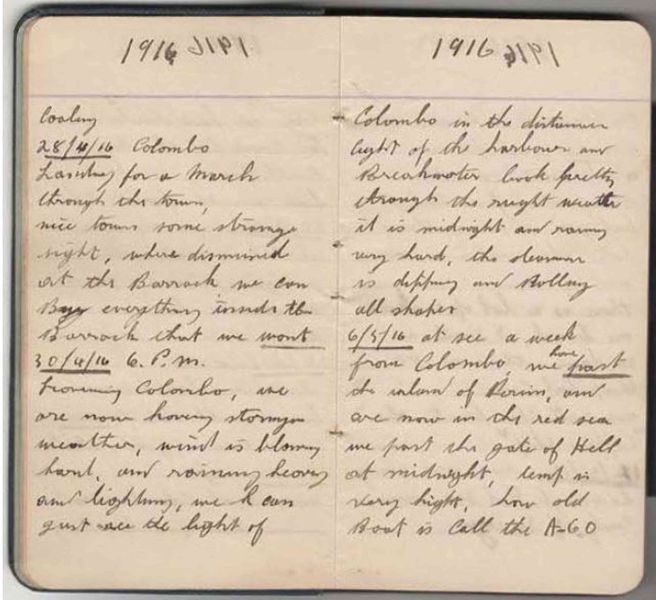 1916
Coaling
28/4/16 Colombo
Landing for a March
through the town,
nice town some strange
sight, where dismissed
at the Barrack we can
Buy everything inside the
Barrack that we want
30/4/16 6. P.M.
Leavening Colombo, we
are now having stormy
weather, wind is blowing
hard, and raining heavy
and lighting, we can
just see the light of
1916
Colombo in the distance
light of the harbour and
Breakwater look pretty
through the night weather
it is midnight and raining
very hard, the steamer
is dipping and Rolling
all shapes
6/5/16 at see a week
from Colombo, we have past
the island of Perim, and
are now in the red sea
we past the gate of Hell
at midnight, temp is
very hight, how old
Boat is Call the A=60